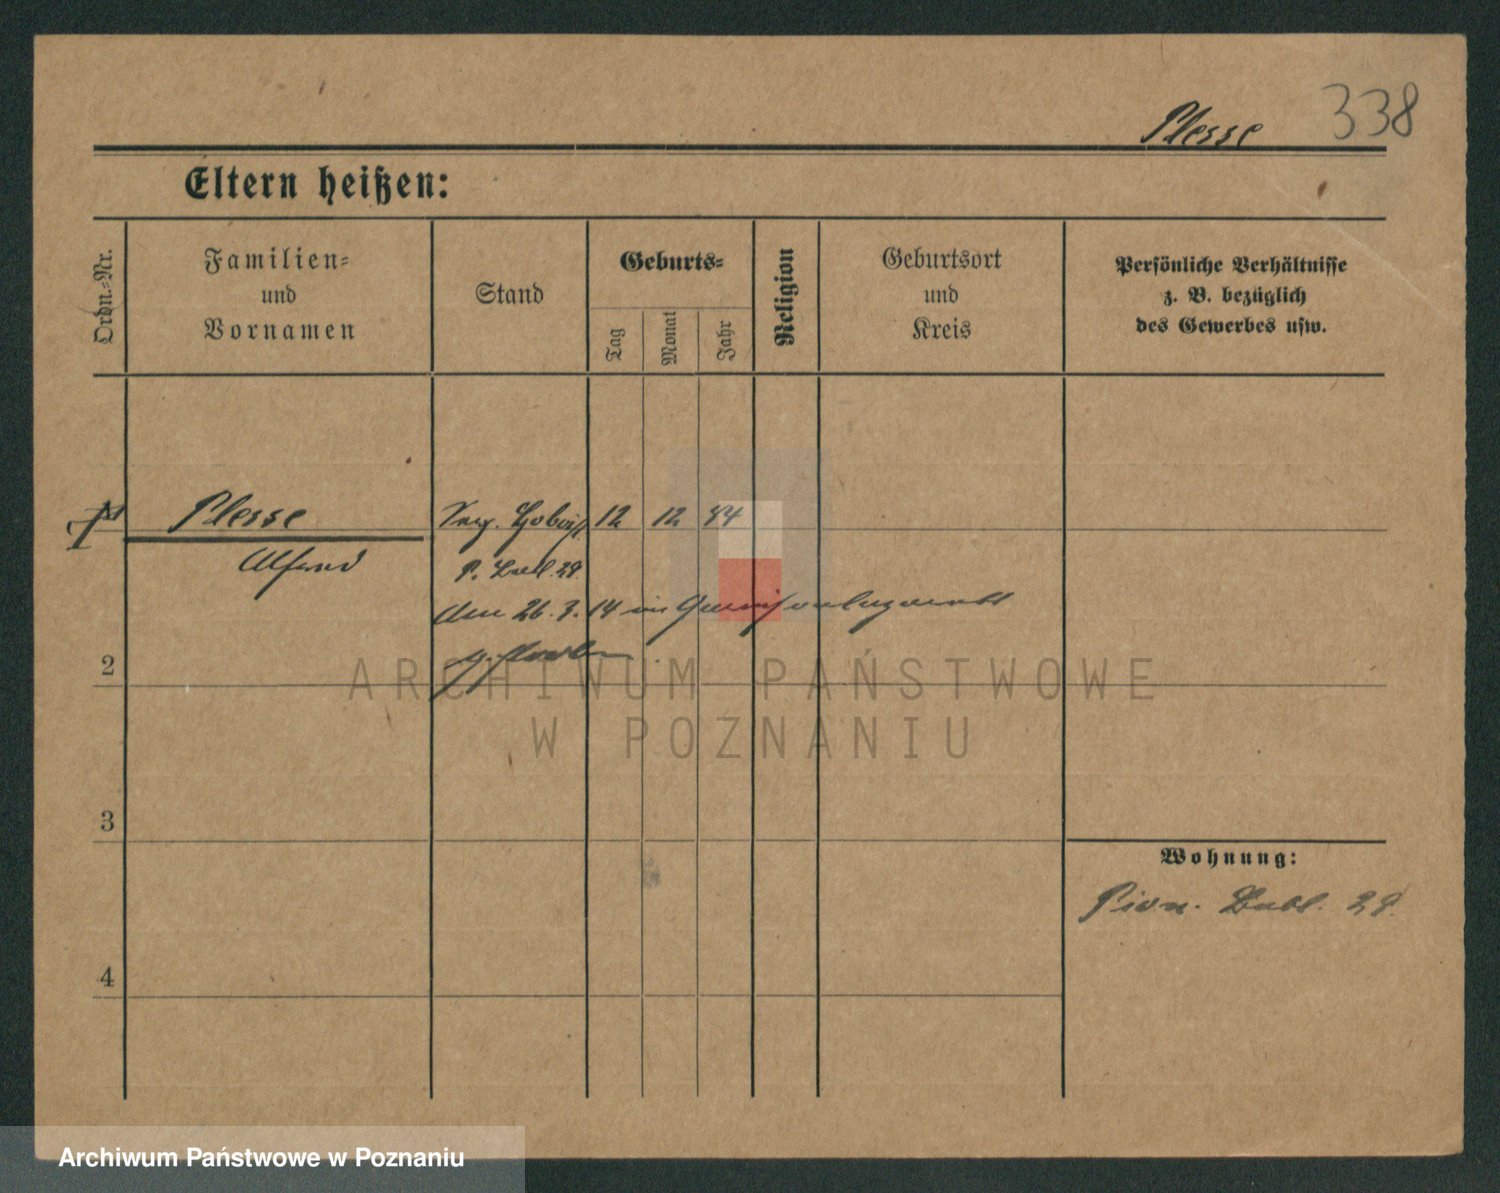 Plesse 338
Eltern heißen:
Ordn.-Nr.
Familien-
und
Vornamen
Stand
Geburts-
Tag
Monat
Jahr
Religion
Geburtsort
und
Kreis
Persönliche Verhältnisse
z. B. bezüglich
des Gewerbes usw.
Plesse 12 12 84
Alfred
P. 29.
Am 26. 14 im
2
3
4
Wohnung:
Pion. 29.
ARCHIWUM PAŃSTWOWE
W POZNANIU
Archiwum Państwowe w Poznaniu